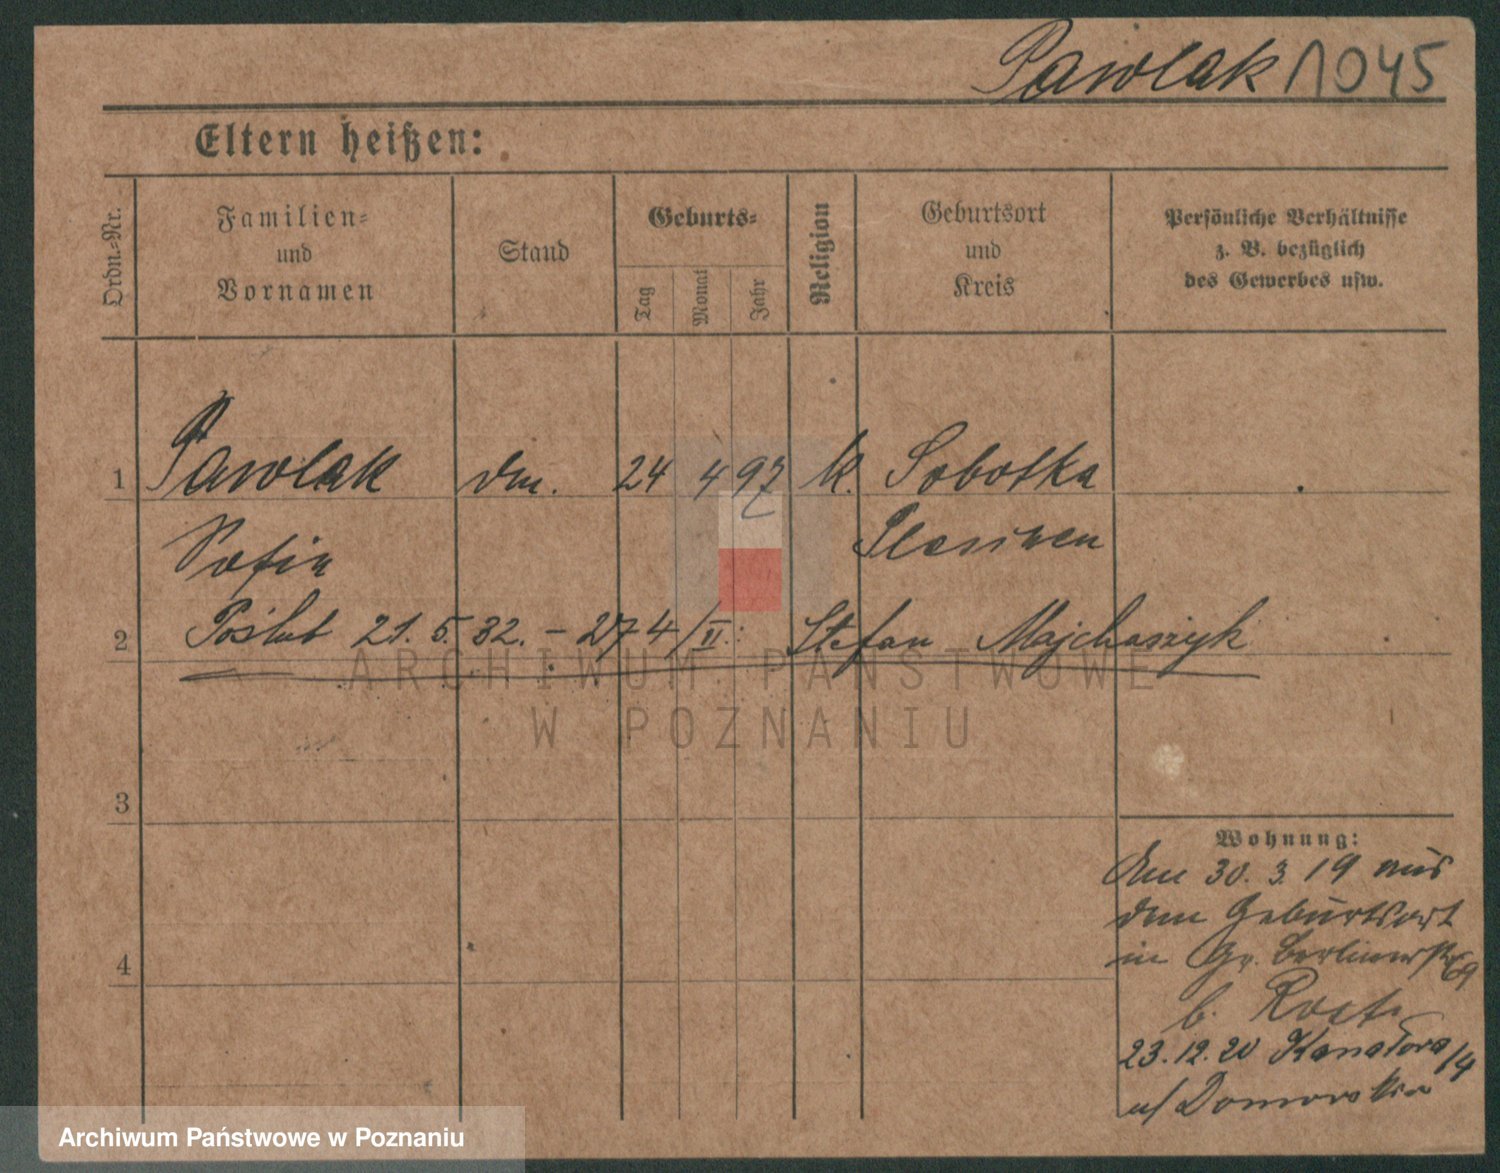 Pawlak 1045
Eltern heißen:
Ordn.-Nr.
Familien-
und
Vornamen
Stand
Geburts-
Tag
Monat
Jahr
Religion
Geburtsort
und
Kreis
Persönliche Verhältnisse
z. B. bezüglich
des Gewerbes usw.
1 Pawlak 24 4 97 k. Sobotka
Sofia Pleschen
2 Poślub 21.5.32. - 274/II.: Stefan Majchaszyk
ARCHIWUM PAŃSTWOWE
W POZNANIU
3
Wohnung:
30. 3. 19 aus
dem Geburtsort
in Gr. Berlinerstr. 69
b.
4
23.12.20 Kanałowa 14
u/ Domowska
Archiwum Państwowe w Poznaniu